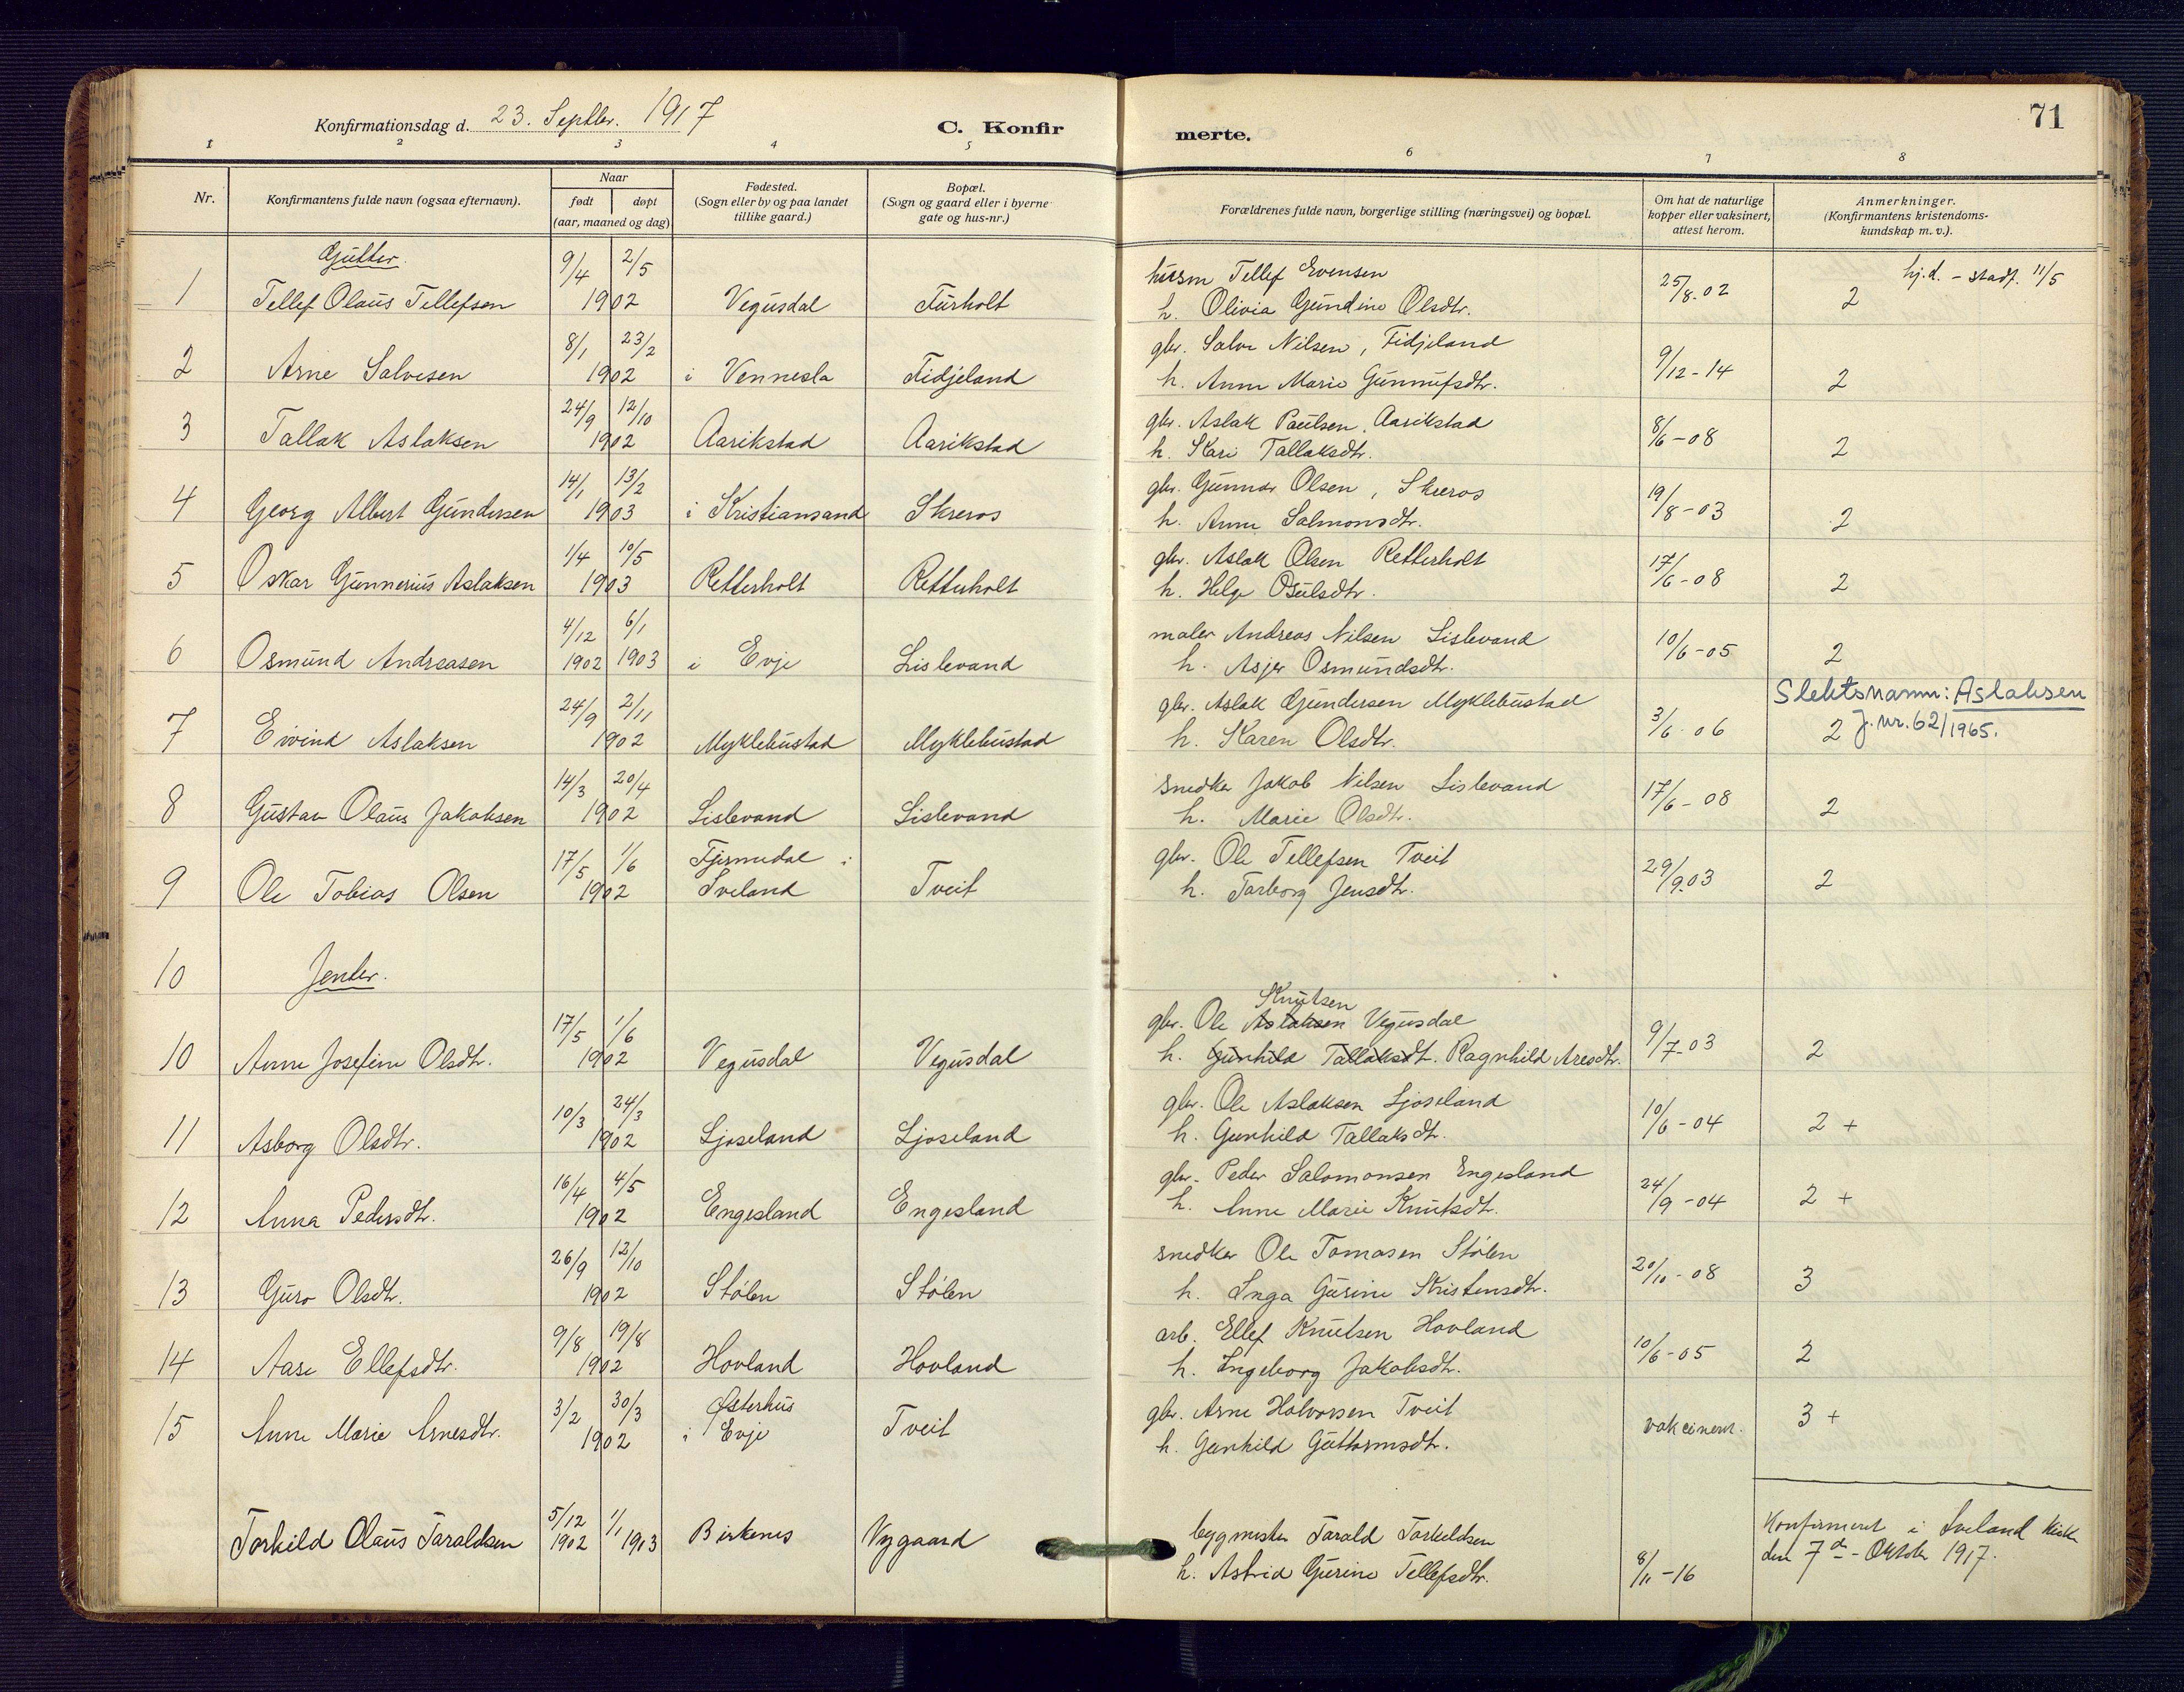 Konfirmationsdag d. 23. Septbr. 1917
C. Konfir merte.
71
1 2 3 4 5 6 7 8
Nr.
Konfirmantens fulde navn (ogsaa efternavn).
Naar
født døpt
(aar, maaned og dag)
Fødested.
(Sogn eller by og paa landet
tillike gaard.)
Bopæl.
(Sogn og gaard eller i byerne
gate og hus-nr.)
Forældrenes fulde navn, borgerlige stilling (næringsvei) og bopæl.
Om hat de naturlige
kopper eller vaksinert,
attest herom.
Anmerkninger.
(Konfirmantens kristendoms-
kundskap m. v.).
Gutter.
1 Tellef Olaus Tellefsen 9/4 2/5 1902 Vegusdal Furholt
husm Tellef Evensen
h. Olivia Gundine Olsdtr. 25/8.02 2 hj.d. - stadf. 11/5
2 Arne Salvesen 8/1 23/2 1902 i Vennesla Fidjeland
gbr. Salve Nilsen, Fidjeland
h. Anne Marie Gunnufsdtr. 9/12-14 2
3 Tallak Aslaksen 24/9 12/10 1902 Aarikstad Aarikstad
gbr. Aslak Paulsen, Aarikstad
h. Kari Tallaksdtr. 8/6-08 2
4 Georg Albert Gundersen 14/1 13/2 1903 i Kristiansand Skreros
gbr. Gunnar Olsen, Skreros
h. Anne Salmonsdtr. 19/8-03 2
5 Oskar Gunnerius Aslaksen 1/4 10/5 1903 Retterholt Retterholt
gbr. Aslak Olsen Retterholt
h. Helge Osulsdtr. 17/6-08 2
6 Osmund Andreasen 4/12 1902 6/1 1903 i Evje Lislevand
maler Andreas Nilsen Lislevand
h. Asjer Osmundsdtr. 10/6-05 2
7 Eivind Aslaksen 24/9 2/11 1902 Myklebustad Myklebustad
gbr. Aslak Gundersen Myklebustad
h. Karen Olsdtr. 3/6 06 2
Slektsnamn: Aslaksen
J.nr. 62/1965.
8 Gustav Olaus Jakobsen 14/3 20/4 1902 Lislevand Lislevand
snedker Jakob Nilsen Lislevand
h. Marie Olsdtr. 17/6-08 2
9 Ole Tobias Olsen 17/5 1/6 1902 Fjermedal i Iveland Tveit
gbr. Ole Tellefsen Tveit
h. Torborg Jensdtr. 29/9.03 2
10 Jenter.
10 Anne Josefine Olsdtr. 17/5 1/6 1902 Vegusdal Vegusdal
Knutsen
gbr. Ole Aslaksen Vegusdal
h. Gunhild Tallaksdt. Ragnhild Aresdtr. 9/7-03 2
11 Asborg Olsdtr. 10/3 24/3 1902 Ljoseland Ljoseland
gbr. Ole Aslaksen Ljoseland
h. Gunhild Tallaksdtr. 10/6-04 2 +
12 Anna Pedersdtr. 16/4 4/5 1902 Engesland Engesland
gbr. Peder Salomonsen Engesland
h. Anne Marie Knutsdtr. 24/9-04 2 +
13 Guro Olsdtr. 26/9 12/10 1902 Stølen Stølen
snedker Ole Tomasen Stølen
h. Inga Gurine Kristensdtr. 20/10-08 3
14 Aase Ellefsdtr. 9/8 19/8 1902 Hovland Hovland
arb. Ellef Knutsen Hovland
h. Ingeborg Jakobsdtr. 10/6-05 2
15 Anne Marie Arnesdtr. 3/2 30/3 1902 Østerhus i Evje Tveit
gbr. Arne Halvorsen Tveit
h. Gunhild Guttormsdtr. vakcinert. 3 +
Torkild Olaus Taraldsen 5/12 1902 1/1 1903 Birkenes Nygaard
bygmester Tarald Torkeldsen
h. Astrid Gurine Tellefsdtr. 8/11-16
Konfirmeret i Iveland kirke
den 7de - Oktober 1917.